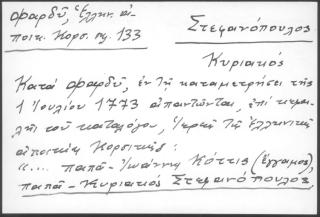 Φαρδῦ, Ἑλλην. ἀ-
ποικ. Κορσ. σελ. 133
Στεφανόπουλος
Κυριακός
Κατά Φαρδῦ, ἐν τῇ καταμετρήσει τῆς
1 Ἰουλίου 1773 ἀπαντῶνται, ἐπί κεφα-
λῆς τοῦ καταλόγου, ἱερεῖς τῆς ἑλληνικῆς
ἀποικίας Κορσικῆς:
«... παπᾶ-Ἰωάννης Κόττης (ἔγγαμος),
παπᾶ-Κυριακός Στεφανόπουλος,